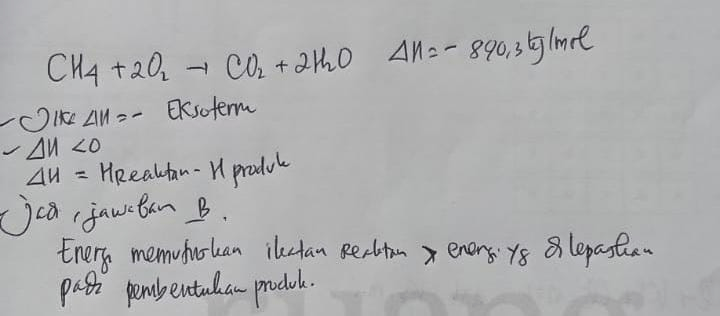 CH4 + 2O2 → CO2 + 2H2O ΔH = - 890,3 kJ/mol
- Jika ΔH = - Eksoterm
- ΔH < 0
ΔH = HReaktan - H produk
Jadi, jawaban B.
Energi memutuskan ikatan Reaktan > energi yg dilepaskan
pada pembentukan produk.